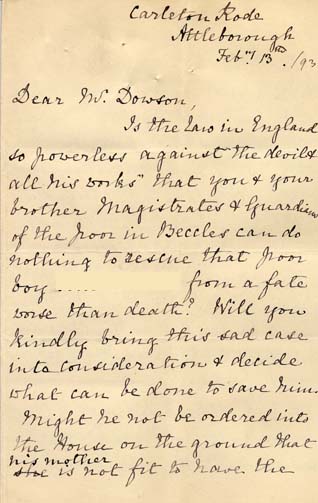 Carleton Rode
Attleborough
Feby 13th /93
Dear Mr. Dowson,
Is the Law in England
so powerless against "the devil &
all his works" that you & your
brother Magistrates & Guardians
of the Poor in Beccles can do
nothing to rescue that poor
boy ..... from a fate
worse than death? Will you
kindly bring this sad case
into consideration & decide
what can be done to save him.
Might he not be ordered into
the House on the ground that
his mother
she is not fit to have the